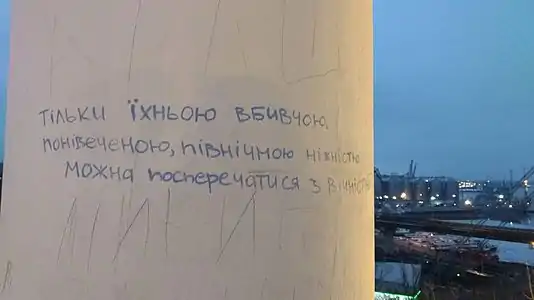 тільки їхньою вбивчою,
понівеченою, північною ніжністю
можна посперечатися з вічністю